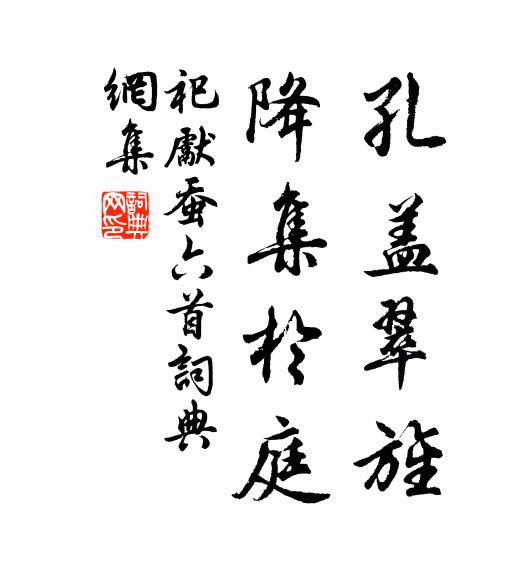 孔盖翠旌
降集於庭
祀獻蚕六首詞典
網集
詞典
网印